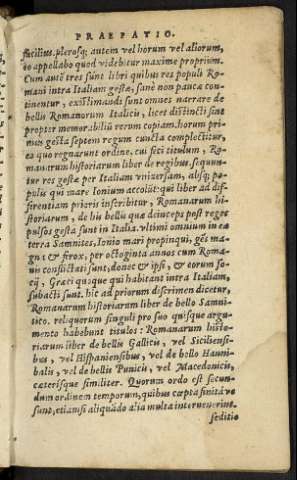 PRAEFATIO.
facilius. plerosq; autem vel horum vel aliorum,
eo appellabo quod videbitur maxime proprium.
Cum autē tres sint libri quibus res populi Ro-
mani intra Italiam gestæ, sanè non pauca con-
tinentur, existimandi sunt omnes narrare de
bellis Romanorum Italicis, licet distincti sint
propter memorabiliū rerum copiam. horum pri-
mus gesta septem regum cuncta complectitur,
ea quo regnarunt ordine. cui feci titulum, Ro-
manarum historiarum liber de regibus. sequun-
tur res gestæ per Italiam vniuersam, absq; po-
pulis qui mare Ionium accolūt: qui liber ad dif-
ferentiam prioris inscribitur, Romanarum hi-
storiarum, de his bellis quæ deinceps post reges
pulsos gesta sunt in Italia. vltimi omnium in ea
terra Samnites, Ionio mari propinqui, gēs ma-
gna & ferox, per octoginta annos cum Roma-
nis conflictati sunt, donec & ipsi, & eorum so-
cij, Græci quoque qui habitant intra Italiam,
subacti sunt. hic ad priorum discrimen dicetur,
Romanarum historiarum liber de bello Samni-
tico. reliquorum singuli pro suo quisque argu-
mento habebunt titulos: Romanarum histo-
riarum liber de bellis Gallicis, vel Siciliensi-
bus, vel Hispaniensibus, vel de bello Hanni-
balis, vel de bellis Punicis, vel Macedonicis,
cæterisque similiter. Quorum ordo est secun-
dum ordinem temporum, quibus cœpta finitáve
sunt, etiamsi aliquādo alia multa interuenerint.
seditio